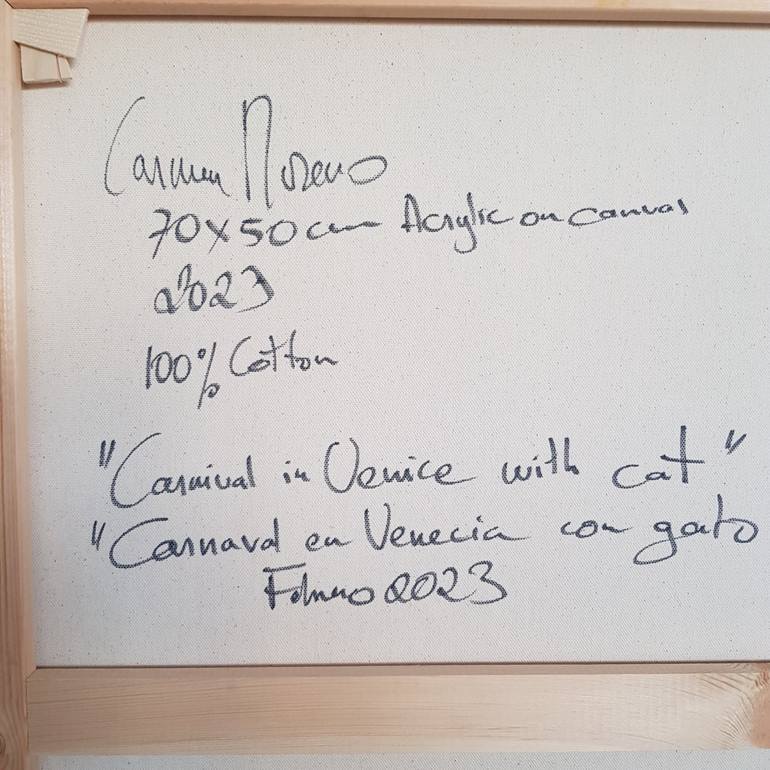 Carmen Moreno
70x50 cm Acrylic on canvas
2023
100% Cotton
"Carnival in Venice with cat"
"Carnaval en Venecia con gato
Febrero 2023